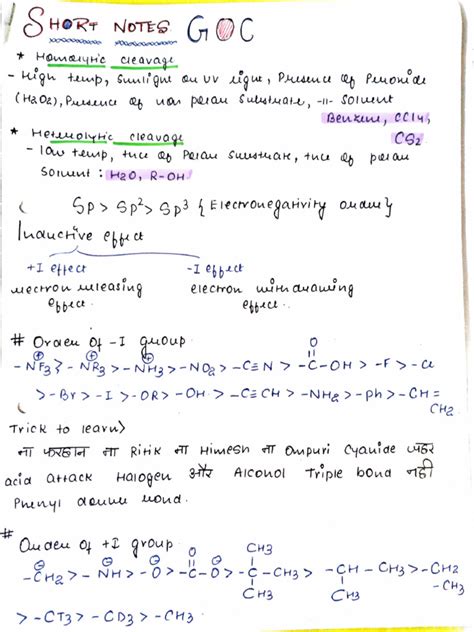 SHORT NOTES GOC
* Homolytic cleavage
- High temp, sunlight on UV light, Presence of Peroxide
(H2O2), Presence of non polar substrate, -11- solvent
Benzene, CCl4,
CS2
* Heterolytic cleavage
- low temp, ↑nce of Polar Substrate, ↑nce of polar
Solvent : H2O, R-OH
Sp > Sp2 > Sp3 { Electronegativity order}
Inductive effect
+I effect -I effect
electron releasing electron withdrawing
effect. effect.
# Order of -I group
-NF3 > -NR3 > -NH3 > -NO2 > -C≡N > -C-OH > -F > -Cl
⊕ ⊕ ⊕ O
> -Br > -I > -OR > -OH > -C≡CH > -NH2 > -Ph > -CH=
CH2
Trick to learn>
ना फरहान ना Ritik ना Himesh ना Ompuri Cyanide जहर
acid attack Halogen और Alcohol Triple bond नही
Phenyl double bond.
# Order of +I group
-CH2 > -NH > -O > -C-O > -C-CH3 > -CH-CH3 > -CH2
⊖ ⊖ ⊖ O ⊖ CH3 CH3 CH3 -CH3
> -CT3 > -CD3 > -CH3